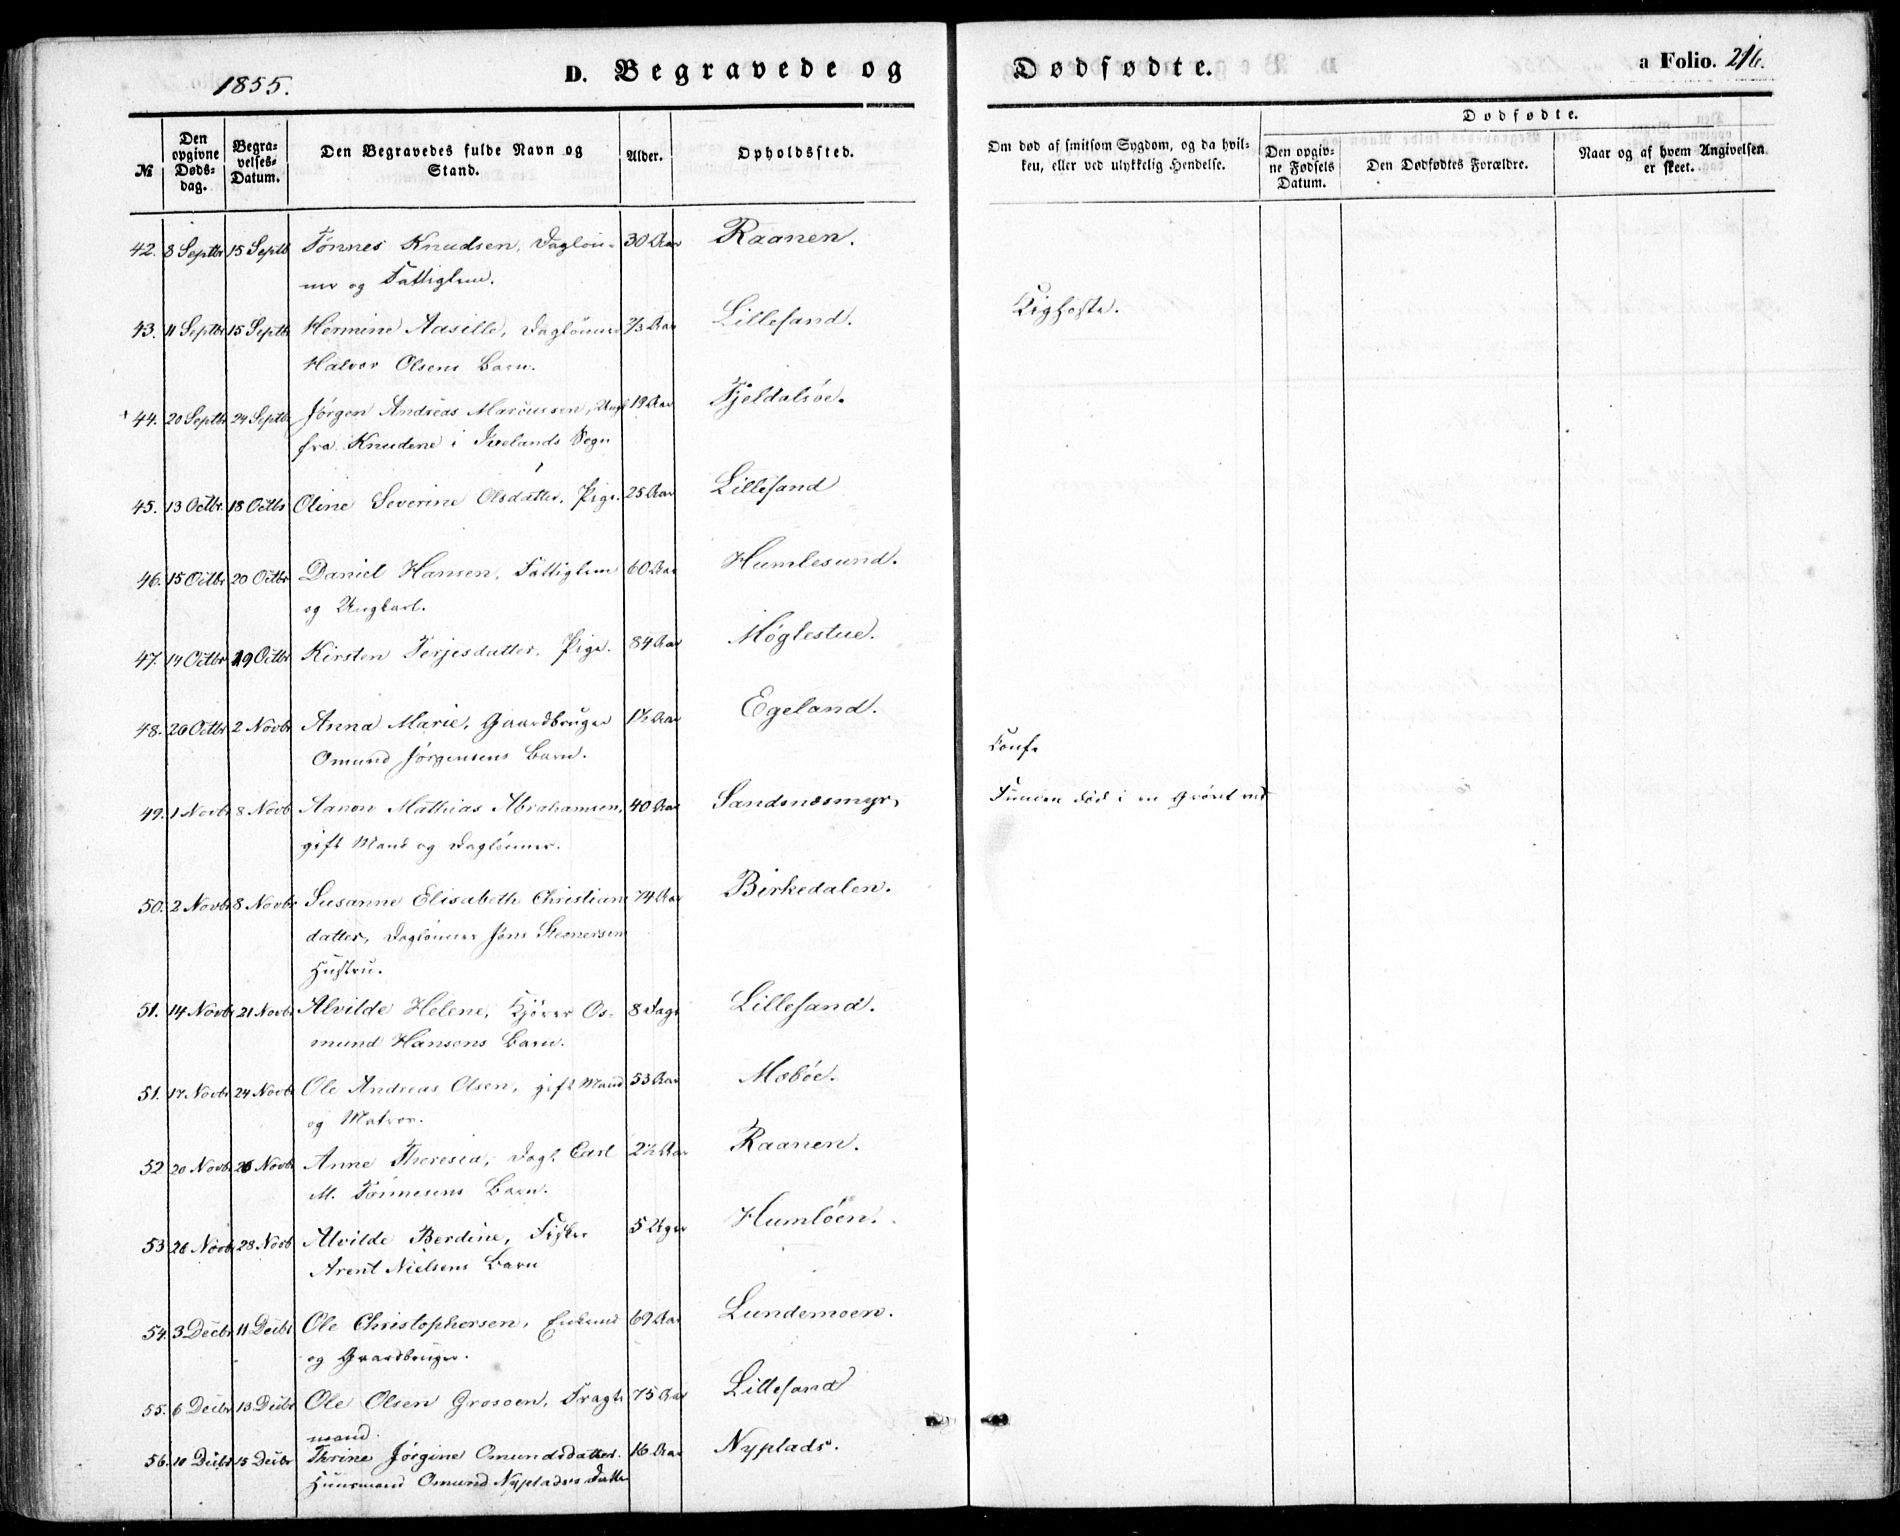 1855.
D. Begravede og
Dødfødte.
a Folio. 216.
№
Den opgivne Døds-dag.
Begra-velses-Datum.
Den Begravedes fulde Navn og Stand.
Alder.
Opholdssted.
Om død af smitsom Sygdom, og da hvil-ken, eller ved ulykkelig Hendelse.
Dødfødte.
Den opgiv-ne Fødsels Datum.
Den Dødfødtes Forældre.
Naar og af hvem Angivelsen er skeet.
42. 8 Septbr 15 Septb Tønnes Knudsen, Daglöi- 30 Aar Raanen.
ner og Fattiglem.
43. 11 Septbr 15 Septbr Hermine Aasille, Daglöiner 2/3 Aar Lillesand. Kighoste.
Halvor Olsens Barn.
44. 20 Septbr 24 Septbr Jørgen Andreas Marcussen, Ungk 19 Aar Fjeldalsöe.
fra Knudene i Ivelands Sogn
45. 13 Octbr. 18 Octbr Oline Severine Olsdatter, Pige. 25 Aar Lillesand
46. 15 Octbr 20 Octbr Daniel Hansen, Fattiglem 60 Aar Humlesund.
og Ungkarl.
47. 14 Octbr 19 Octbr Kirsten Terjesdatter, Pige. 84 Aar Møglestue.
48. 26 Octbr 2 Novbr Anna Marie, Gaardbruger 1½ Aar Egeland.
Omund Jørgensens Barn.
49. 1 Novbr 8 Novb Aanon Mathias Abrahamsen, 40 Aar Sandsnæsmyr, Funden død i en Grövt ved
gift Mand og Daglöinner.
50. 2 Novbr 8 Novbr Susanne Elisabeth Christians 74 Aar Birkedalen.
datter, Daglöinner Jens Steenersens
Hustru.
51. 14 Novbr 21 Novbr Alvilde Helene, Kjörer Os- 8 Dage Lillesand.
mund Hansens Barn.
51. 17 Novbr 24 Novbr Ole Andreas Olsen, gift Mand 53 Aar Mæböe.
og Matros.
52 20 Novbr 26 Novbr Anne Theresia, Dagl. Carl 2½ Aar Raanen.
M. Tönnesens Barn.
53 26 Novbr 28 Novb Alvilde Berdine, Fisker 5 Uger Humlöen.
Arent Nielsens Barn
54. 3 Decbr 11 Decbr Ole Christophersen, Enkemd 69 Aar Lundemoen.
og Gaardbruger.
55. 6 Decbr 13 Decbr Ole Olsen Grosoen, Fragt- 75 Aar Lillesand
mand.
56. 10 Decbr 15 Decbr Thrine Jørgine Omundsdatter. 16 Aar Nyplads.
Huusmand Omund Nypladses Datter